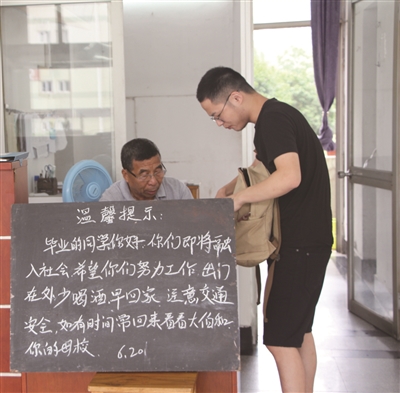 温馨提示:
毕业的同学你好.你们即将融
入社会.希望你们努力工作 出门
在外少喝酒早回家 注意交通
安全.如有时间常回来看看大伯和
你的母校. 6.201